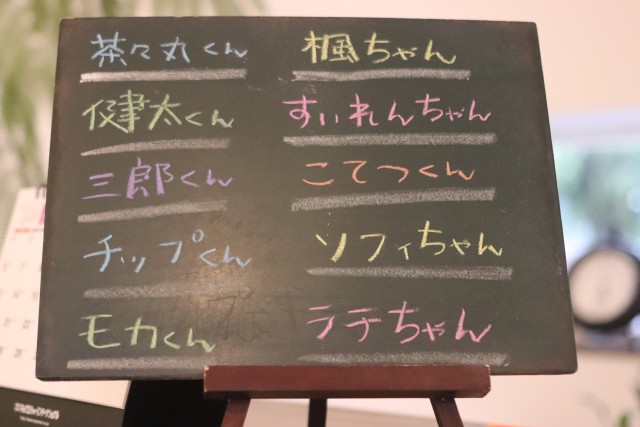 茶々丸くん
健太くん
三郎くん
チップくん
モカくん
楓ちゃん
すいれんちゃん
こてつくん
ソフィちゃん
ラテちゃん